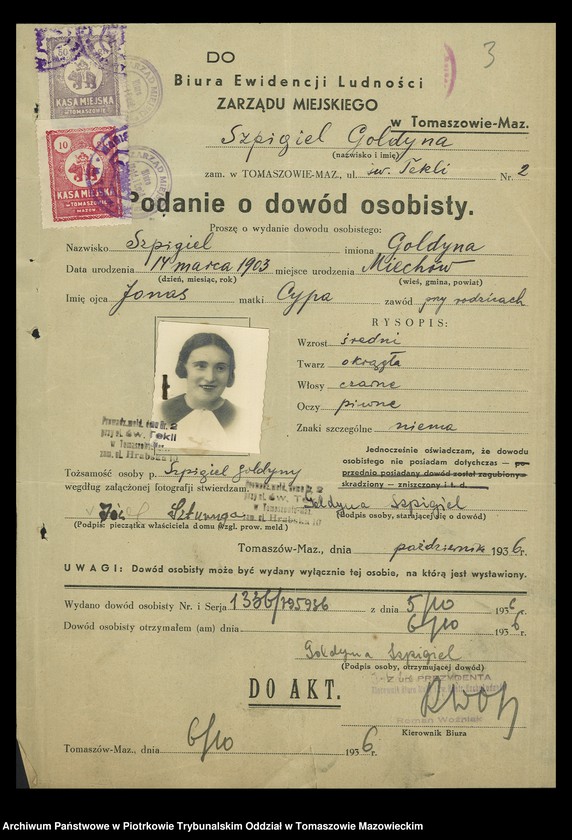 3
DO
Biura Ewidencji Ludności
ZARZĄDU MIEJSKIEGO
w Tomaszowie-Maz.
50
KASA MIEJSKA
w TOMASZOWIE
10
KASA MIEJSKA
w TOMASZOWIE
MAZOW.
Szpigiel Goldyna
(nazwisko i imię)
zam. w TOMASZOWIE-MAZ., ul. św. Tekli Nr. 2
Podanie o dowód osobisty.
Proszę o wydanie dowodu osobistego:
Nazwisko Szpigiel imiona Goldyna
Data urodzenia 14 marca 1903 miejsce urodzenia Miechów
(dzień, miesiąc, rok) (wieś, gmina, powiat)
Imię ojca Jonas matki Cypa zawód przy rodzicach
RYSOPIS:
Wzrost średni
Twarz okrągła
Włosy czarne
Oczy piwne
Znaki szczególne niema
Prowadz. meld. domu Nr. 2
przy ul. św. Tekli
w Tomaszowie-Maz.
Jednocześnie oświadczam, że dowodu
osobistego nie posiadam dotychczas — po-
przednio posiadany dowód został zagubiony —
skradziony — zniszczony i t. d.
Tożsamość osoby p. Szpigiel Goldyny
według załączonej fotografii stwierdzam.
Goldyna Szpigiel
(Podpis osoby, starającej się o dowód)
(Podpis: pieczątka właściciela domu wzgl. prow. meld.)
Tomaszów-Maz., dnia październik 1936 r.
UWAGI: Dowód osobisty może być wydany wyłącznie tej osobie, na którą jest wystawiony.
Wydano dowód osobisty Nr. i Serja 1336/795936 z dnia 5/10 1936 r.
Dowód osobisty otrzymałem (am) dnia 6/10 1936 r.
Goldyna Szpigiel
(Podpis osoby, otrzymującej dowód)
Z UP. PREZYDENTA
DO AKT.
Roman Woźniak
Kierownik Biura
Tomaszów-Maz., dnia 6/10 1936 r.
Archiwum Państwowe w Piotrkowie Trybunalskim Oddział w Tomaszowie Mazowieckim